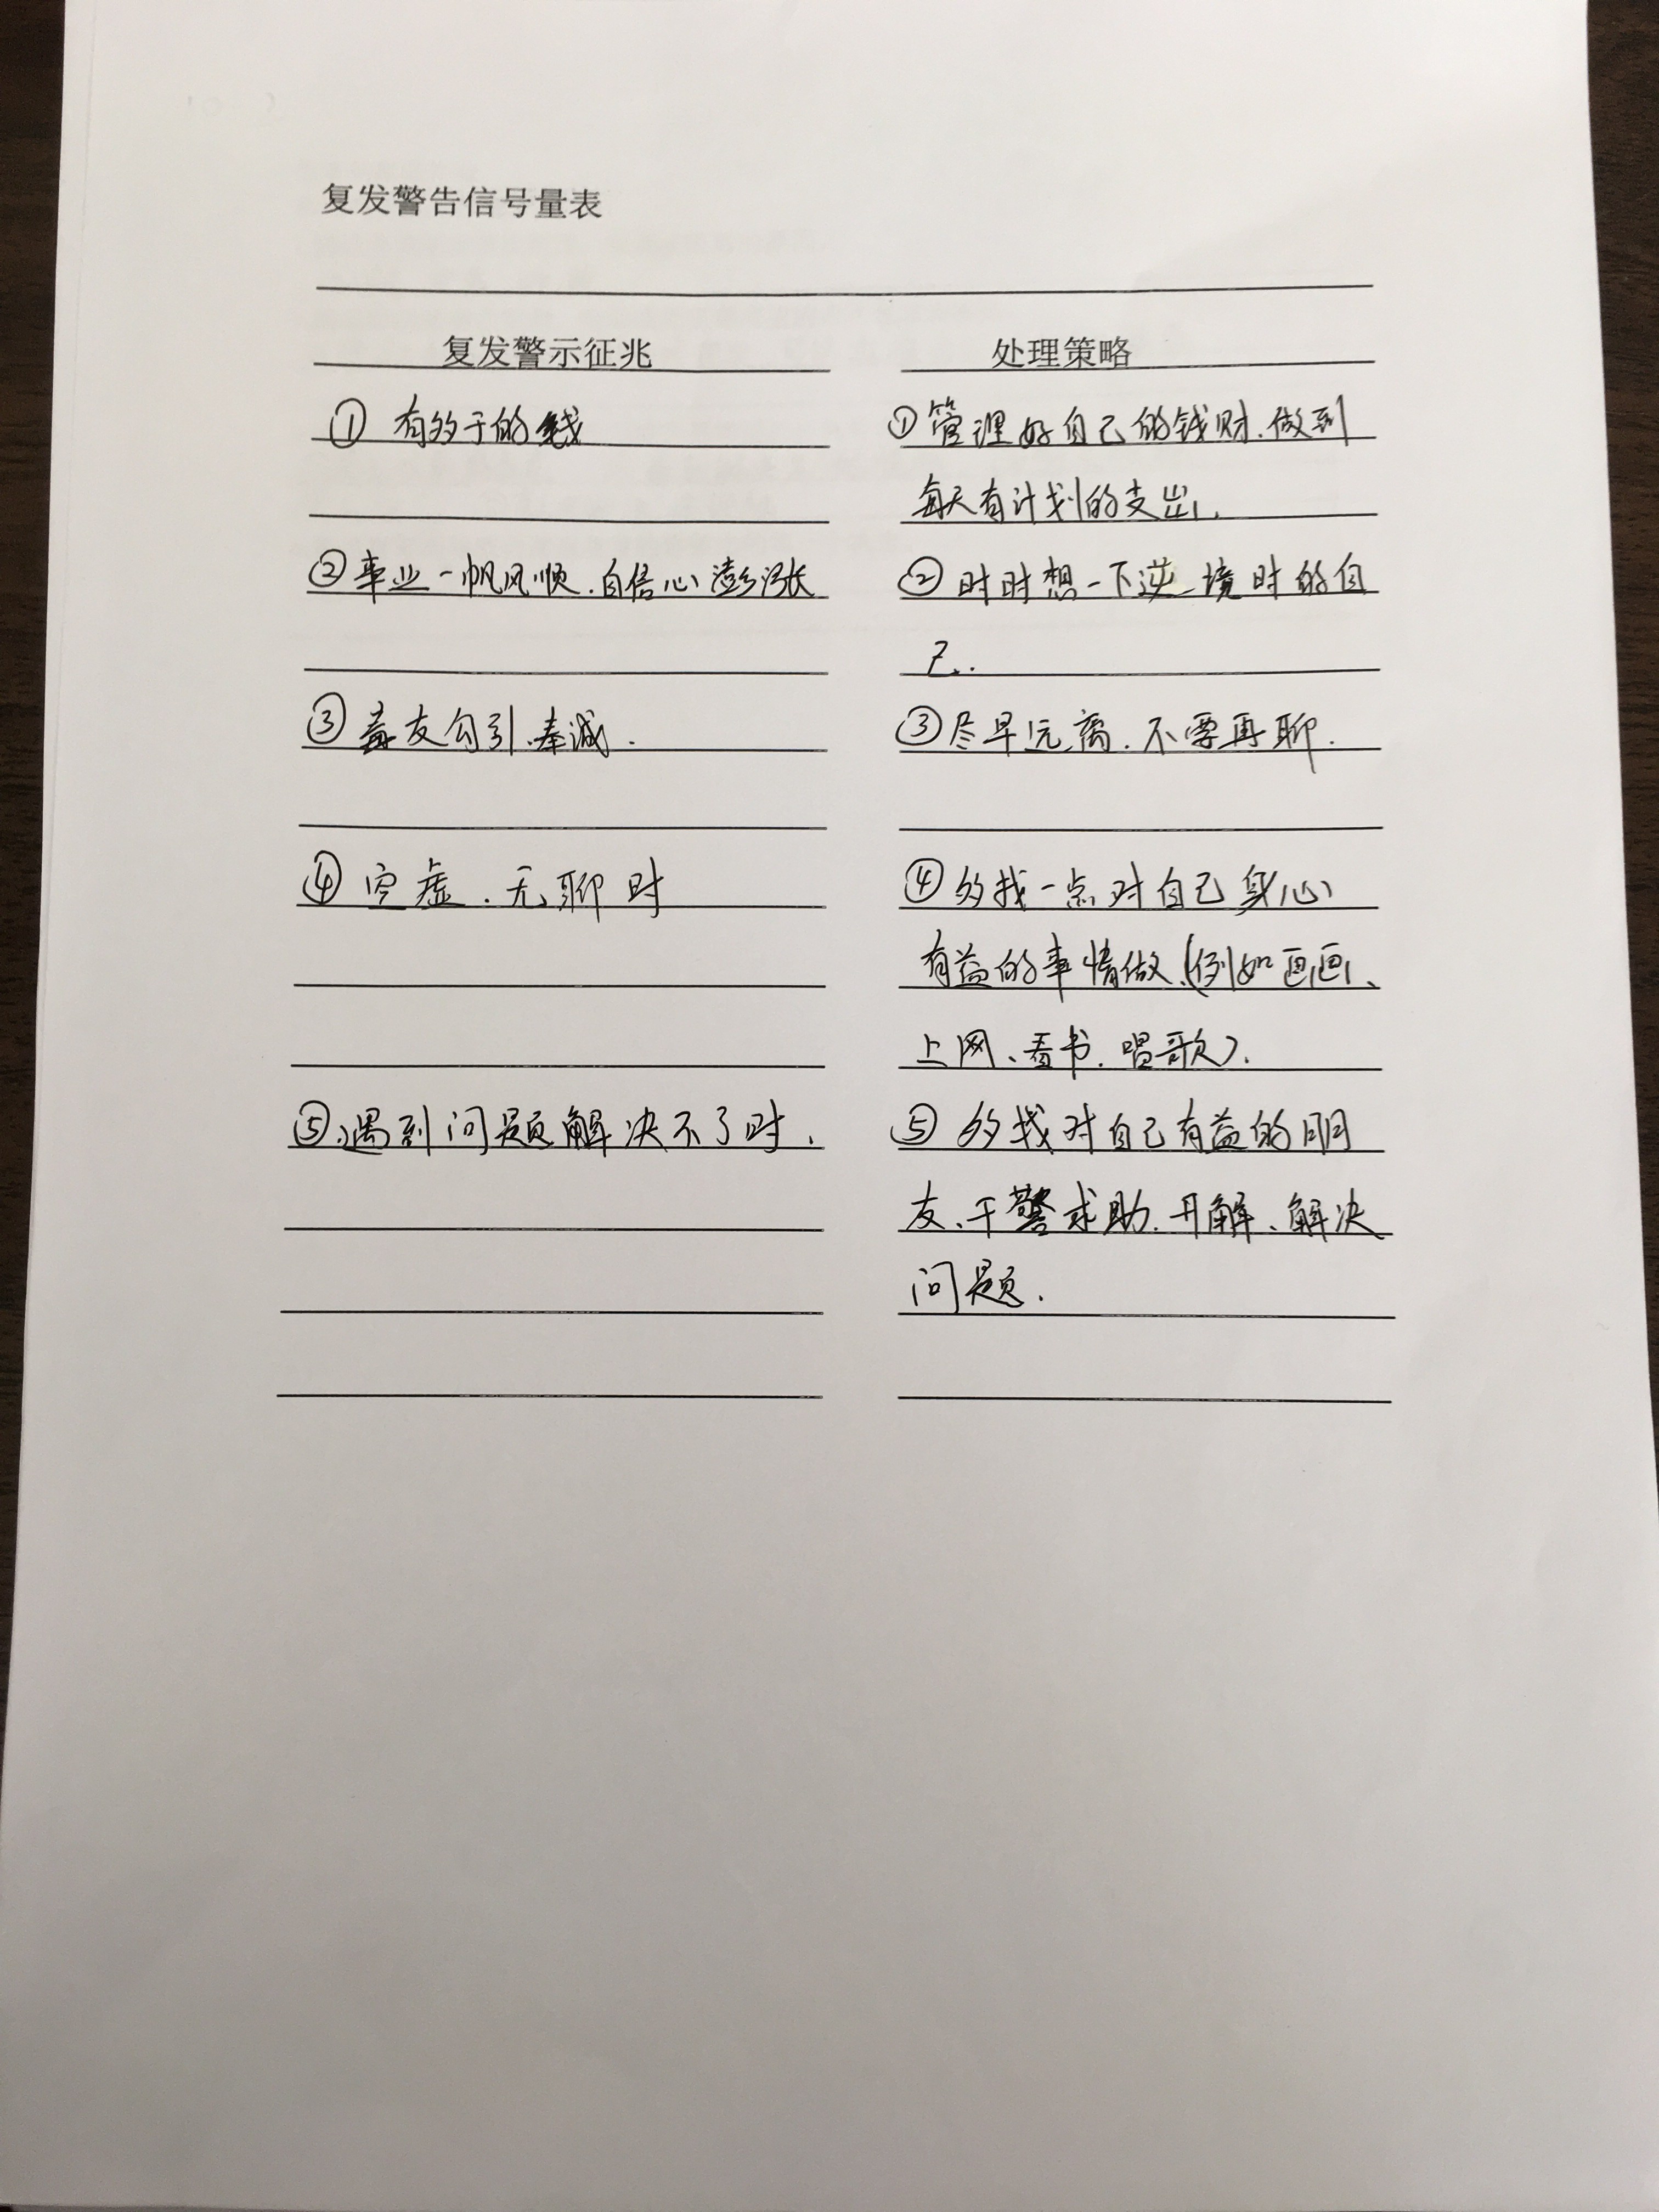 复发警告信号量表
复发警示征兆
处理策略
① 有多于的钱
① 管理好自己的钱财.做到
每天有计划的支出.
② 事业一帆风顺.自信心澎涨
② 时时想一下逆境时的自
己..
③ 毒友勾引.奉
③ 尽早远离.不要再聊.
④ 空虚.无聊时
④ 多找一点对自己身心
有益的事情做.(例如画画、
上网、看书.唱歌).
⑤.遇到问题解决不了时.
⑤ 多找对自己有益的朋
友、干警求助.开解、解决
问题.